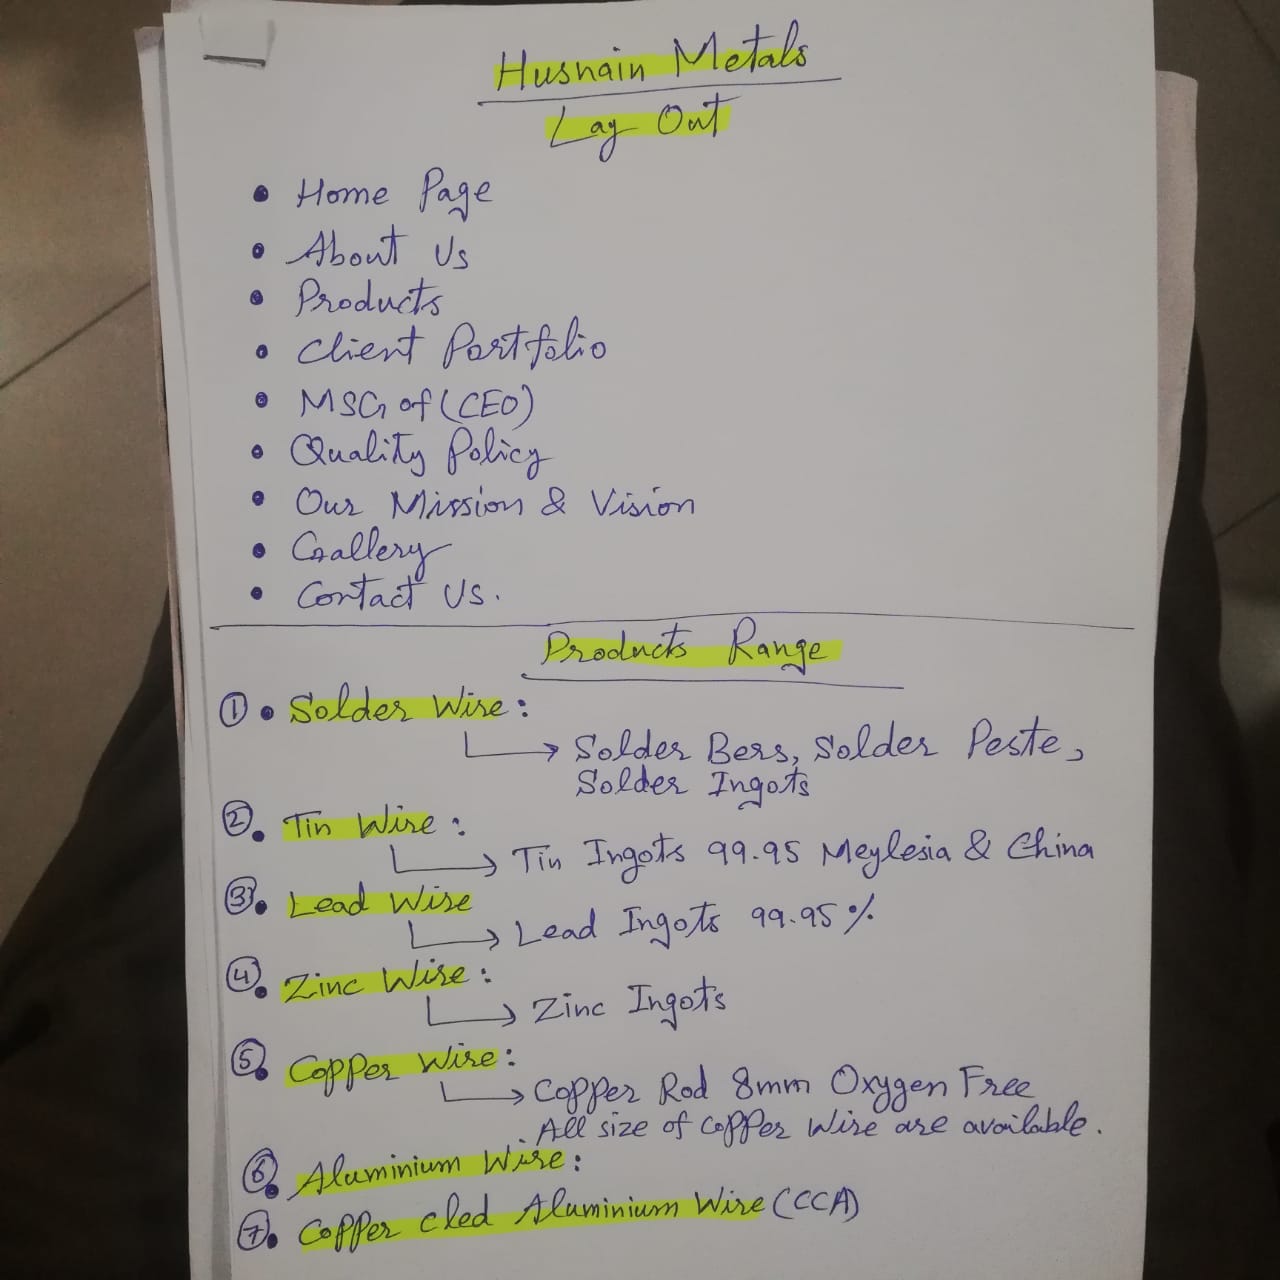 Husnain Metals
Lay Out
• Home Page
• About Us
• Products
• Client Portfolio
• MSG of (CEO)
• Quality Policy
• Our Mission & Vision
• Gallery
• Contact Us.
Products Range
① • Solder Wire:
Solder Bers, Solder Peste,
Solder Ingots
②. Tin Wire:
Tin Ingots 99.95 Meylesia & China
③. Lead Wire
Lead Ingots 99.95%
④. Zinc Wire:
Zinc Ingots
⑤. Copper Wire:
Copper Rod 8mm Oxygen Free
All size of copper wire are available.
⑥. Aluminium Wire:
⑦. Copper cled Aluminium Wire (CCA)